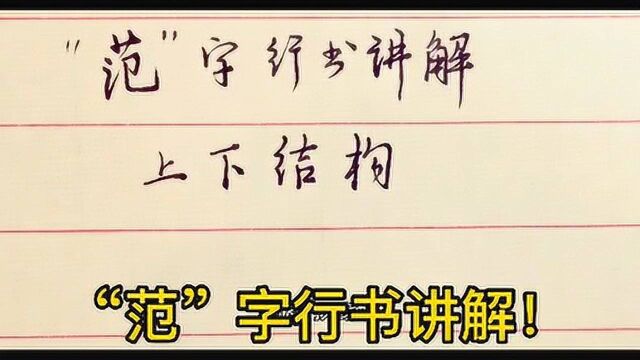 “范”字行书讲解
上下结构
“范”字行书讲解！